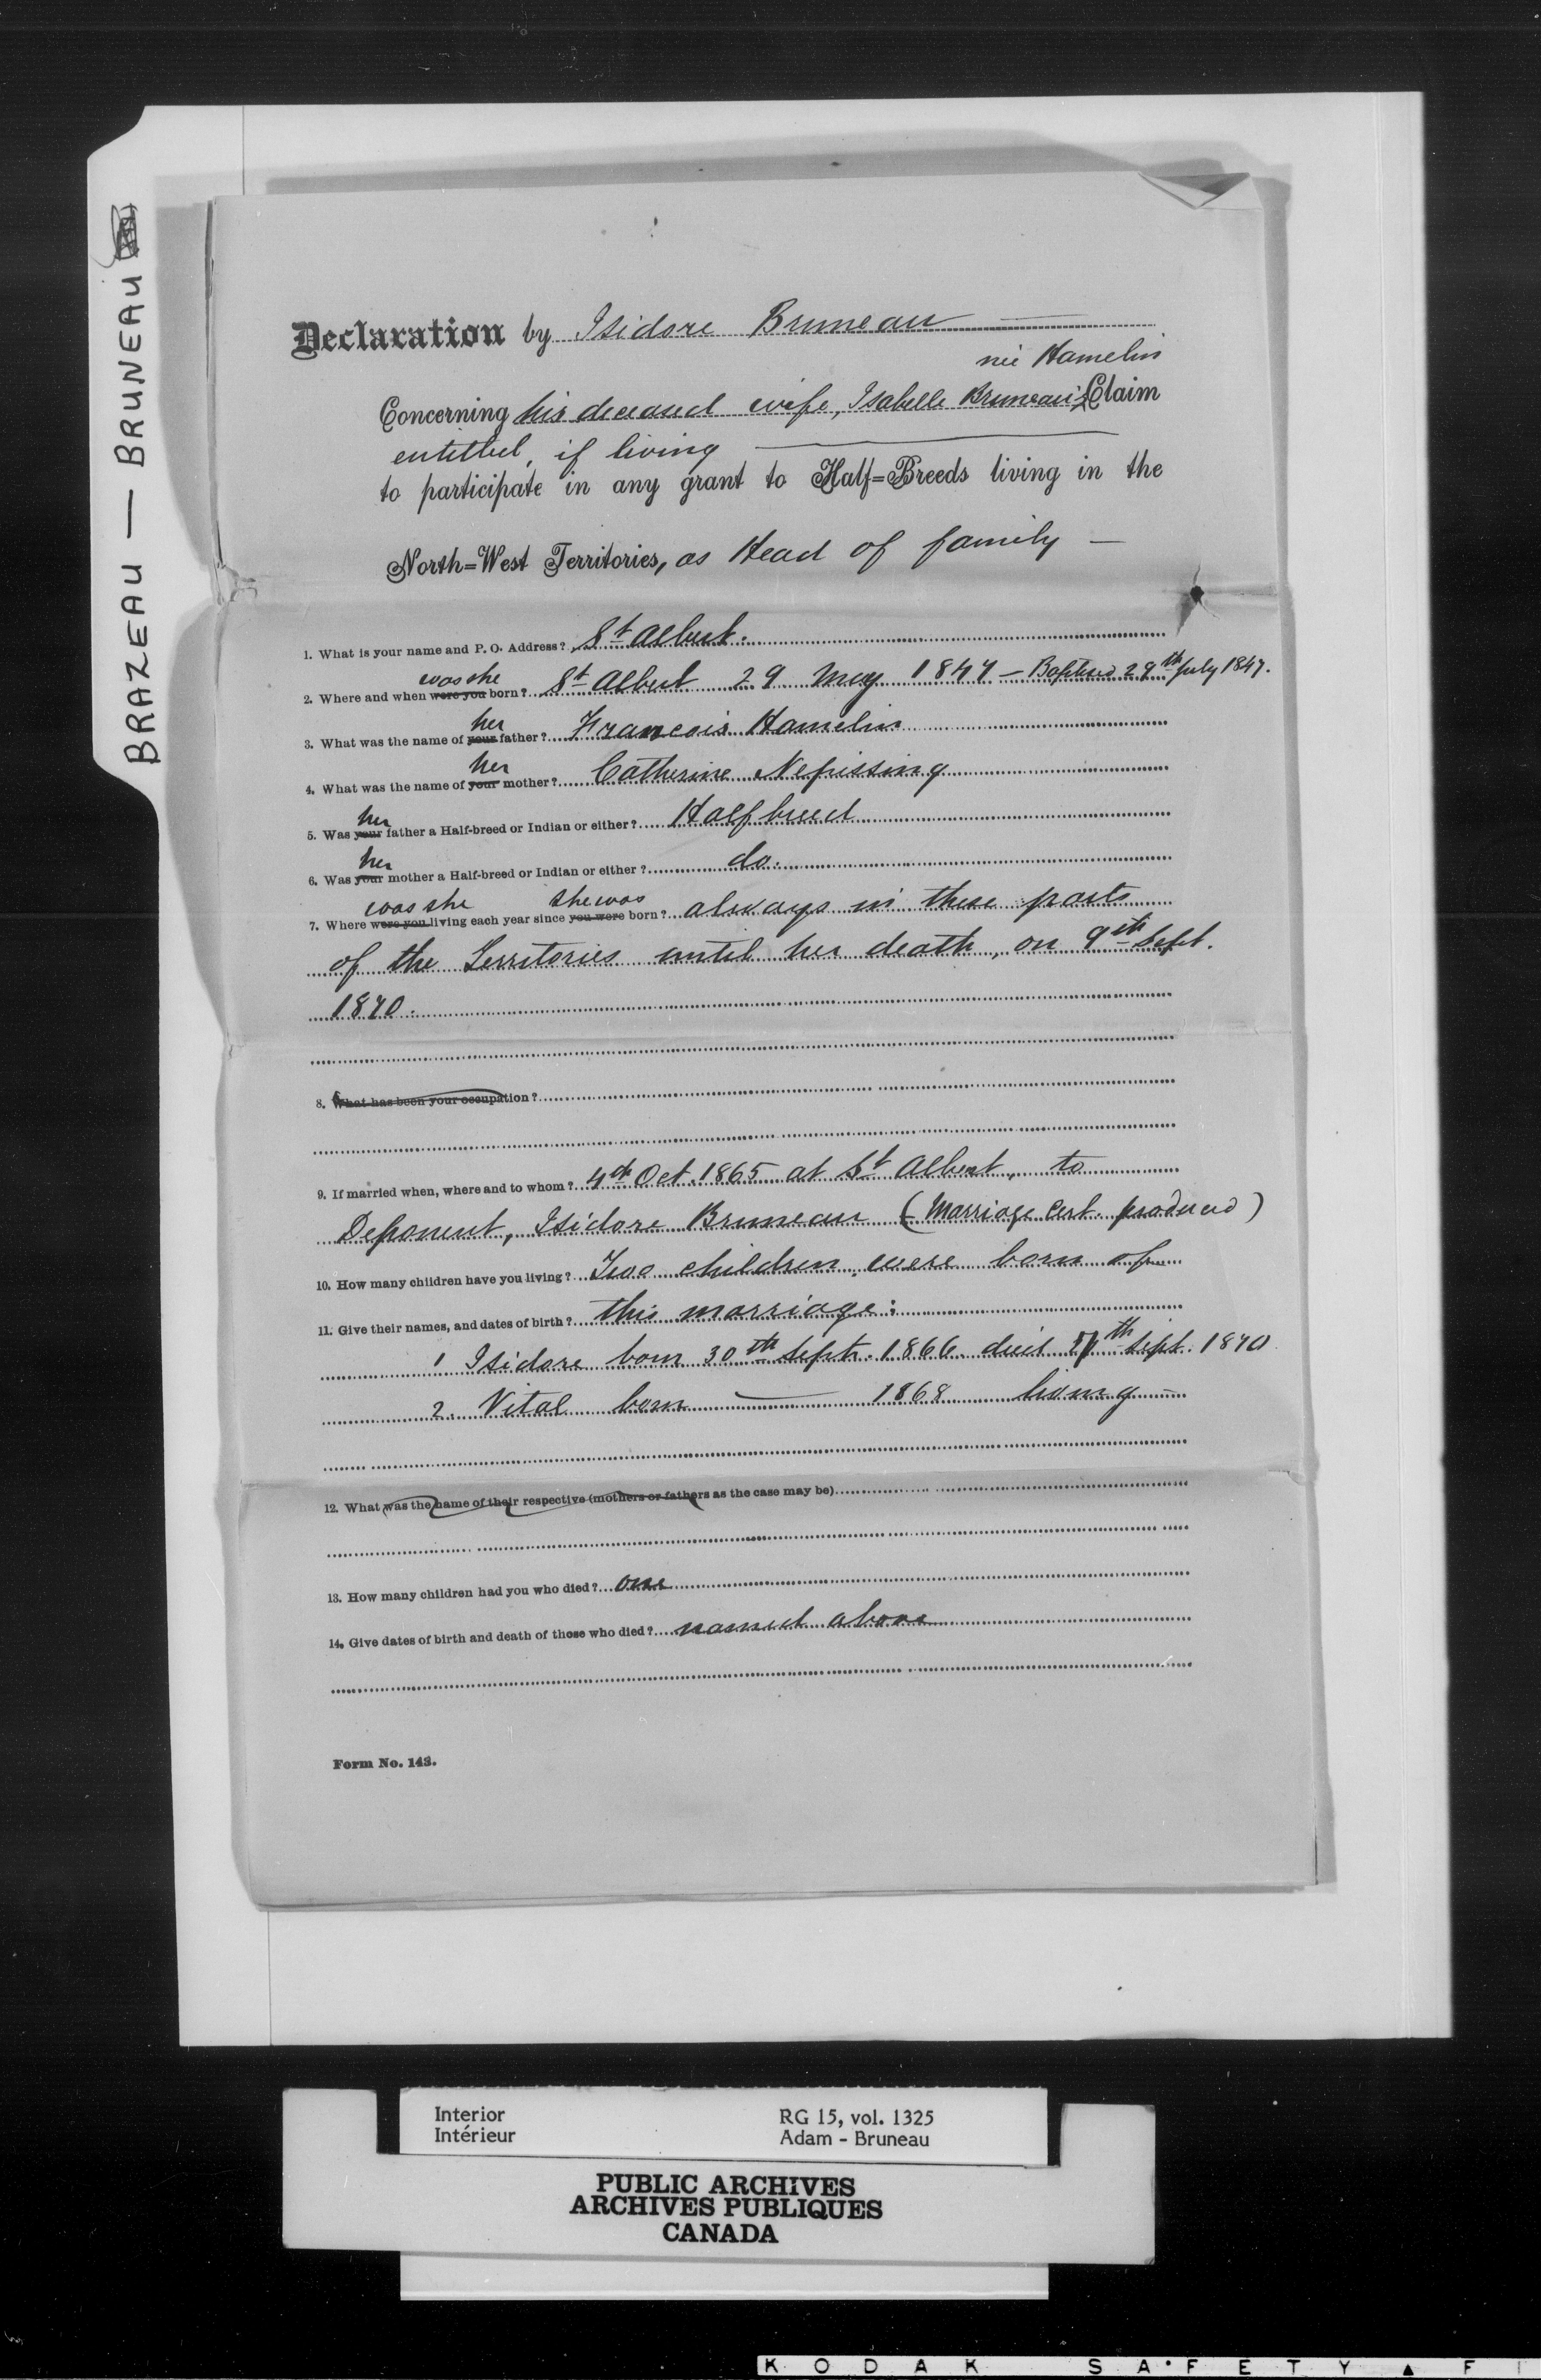 BRAZEAU — BRUNEAU
Declaration by Isidore Bruneau
née Hamelin
Concerning his deceased wife, Isabelle Bruneau's Claim
entitled, if living
to participate in any grant to Half=Breeds living in the
North=West Territories, as Head of family —
1. What is your name and P. O. Address? St Albert.
was she
2. Where and when were you born? St Albert 29 May 1847 — Baptised 29th July 1847.
her
3. What was the name of your father? Francois Hamelin
her
4. What was the name of your mother? Catherine Nepissing
her
5. Was your father a Half-breed or Indian or either? Half breed
her
6. Was your mother a Half-breed or Indian or either? do.
was she she was
7. Where were you living each year since you were born? always in these parts
of the Territories until her death, on 9th Sept.
1870.
8. What has been your occupation?
9. If married when, where and to whom? 4th Oct. 1865 at St Albert, to
Deponent, Isidore Bruneau (Marriage Cert. produced)
10. How many children have you living? Two children were born of
11. Give their names, and dates of birth? this marriage:
1 Isidore born 30th Sept. 1866 died th Sept. 1870
2. Vital born — 1868 living —
12. What was the name of their respective (mothers or fathers as the case may be)
13. How many children had you who died? one
14. Give dates of birth and death of those who died? named above
Form No. 143.
Interior RG 15, vol. 1325
Intérieur Adam - Bruneau
PUBLIC ARCHIVES
ARCHIVES PUBLIQUES
CANADA
KODAK SAFETY ▲ F I